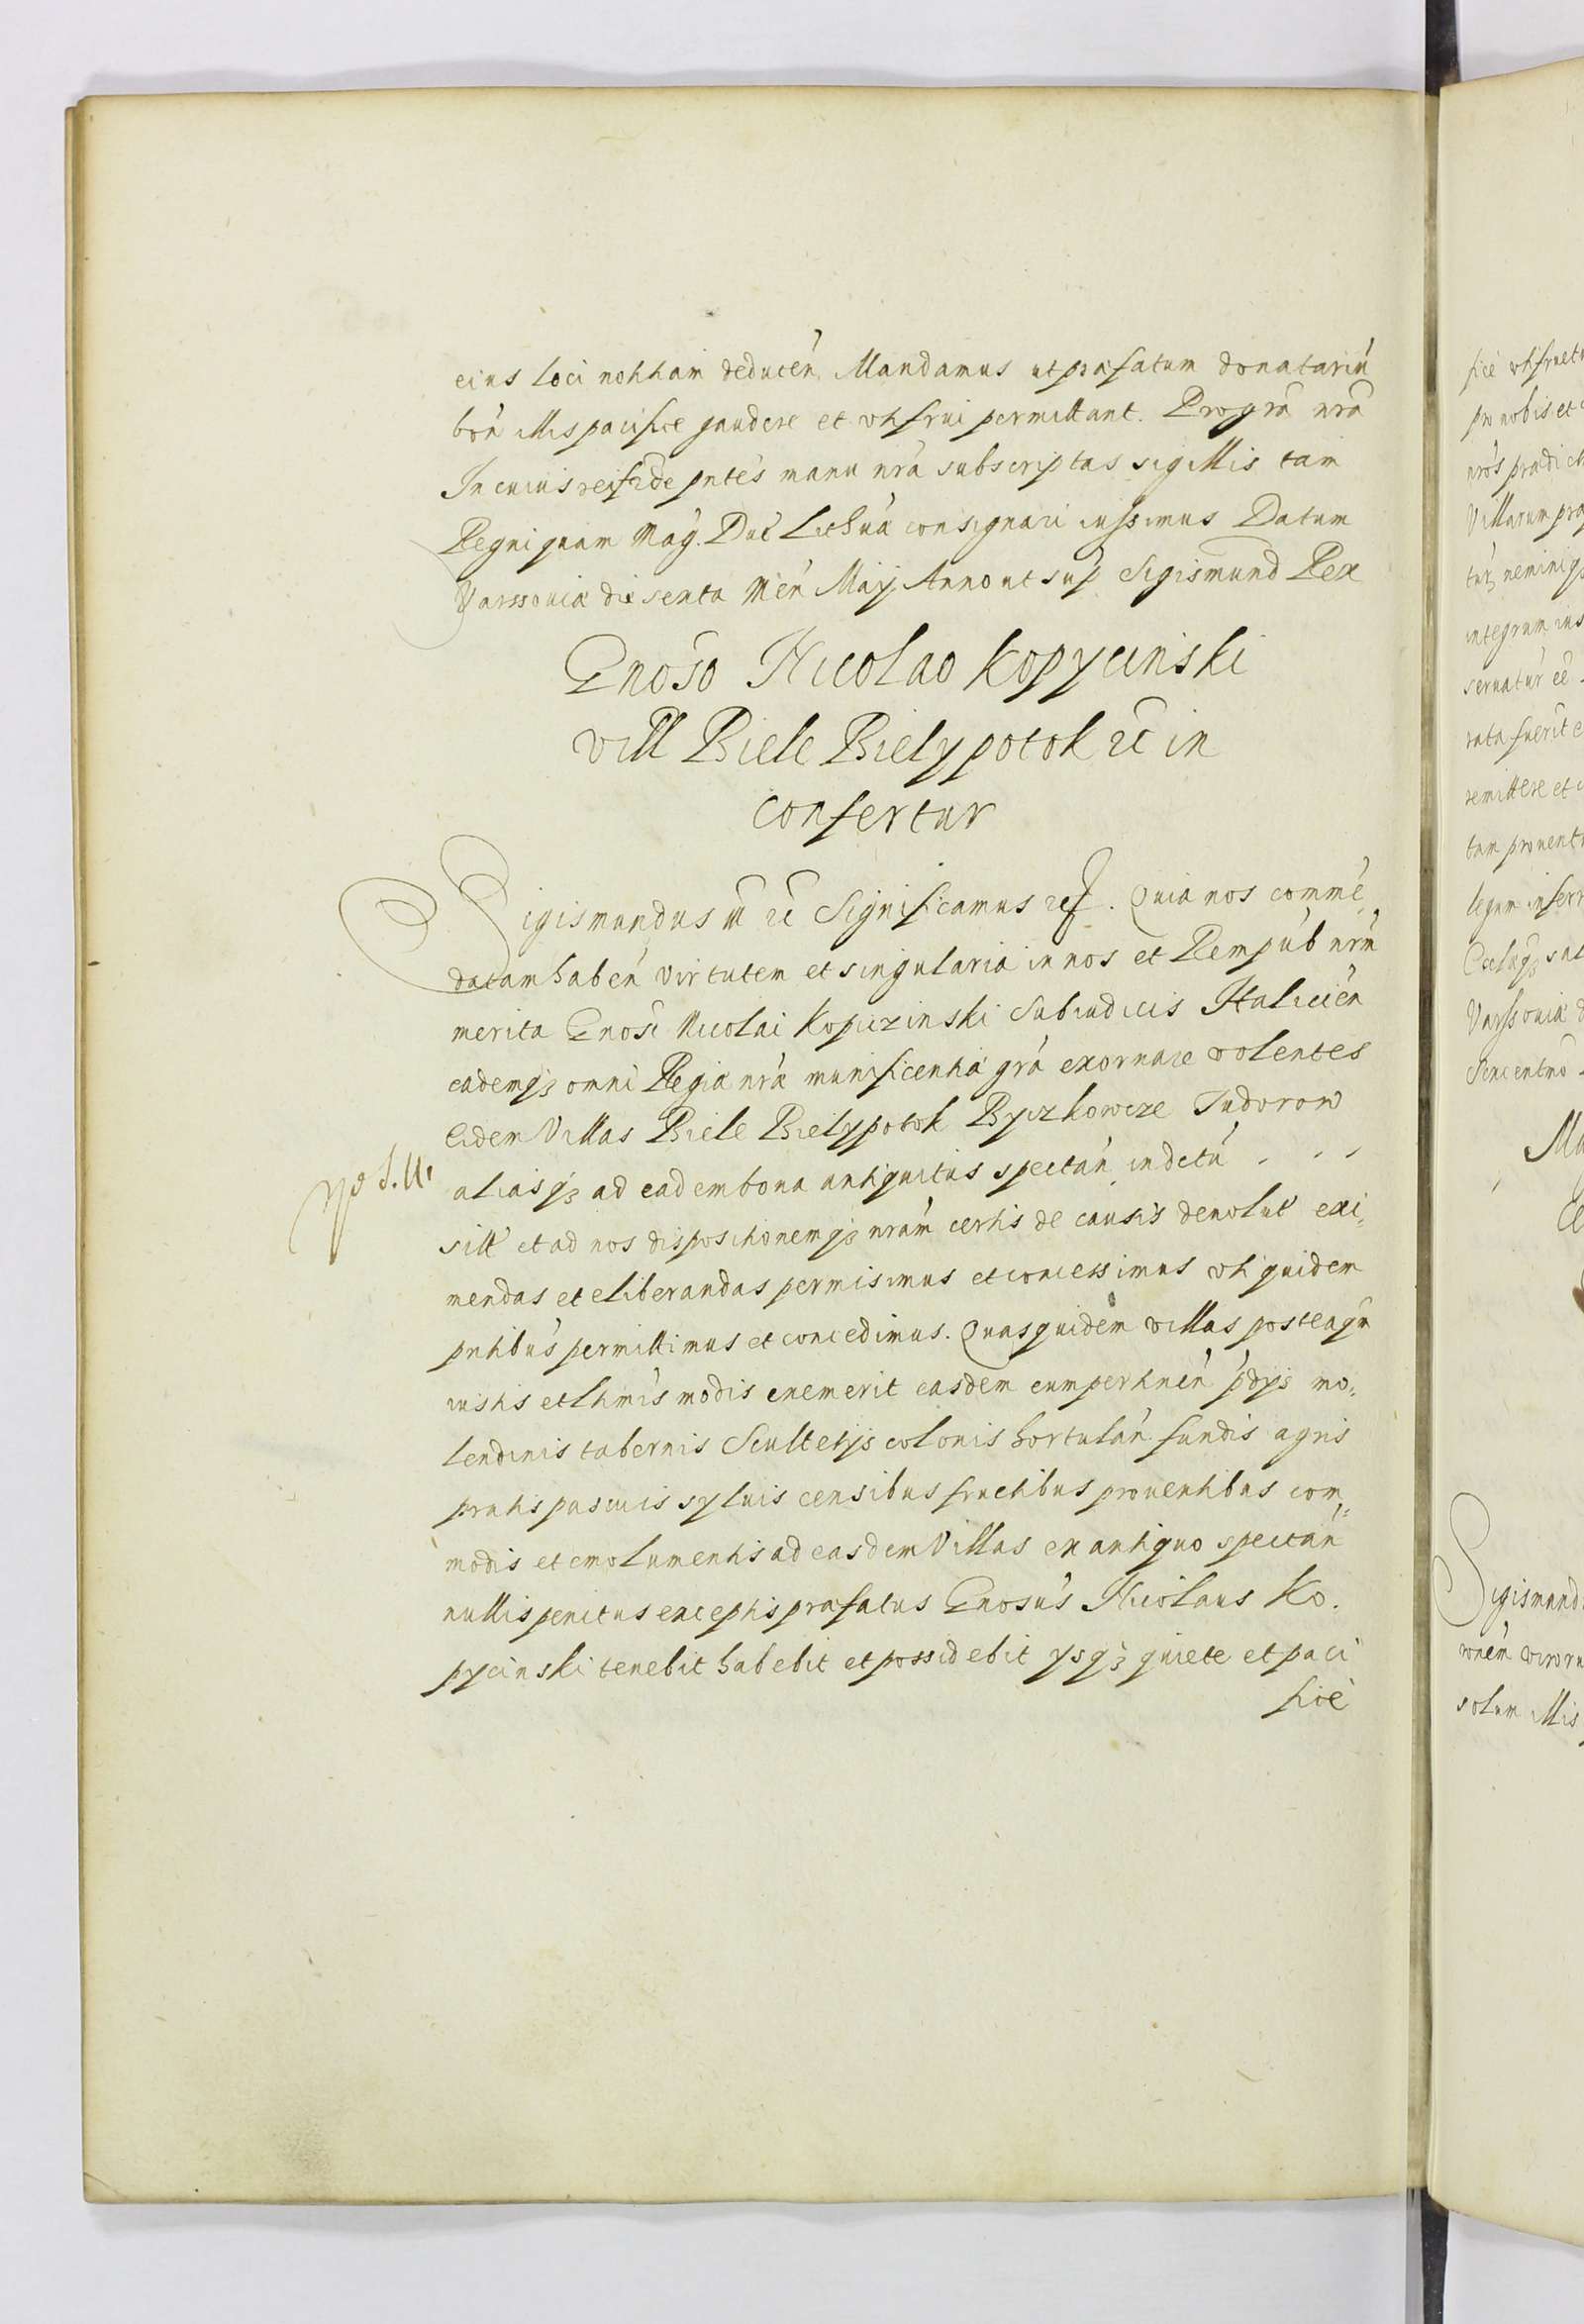 eius loci notitiam deducen̄ Mandamus ut præfatum donatariū
bon̄ illis pacifice gaudere et utifrui permittant. Pro gr̄a nr̄a
In cuius rei fide pn̄tes manu nr̄a subscriptas sigillis tam
Regni quam Mag. Duc Lithuā consignari iussimus Datum
Varssoviæ die sexta Men̄ Maij Anno ut sup̄ Sigismund Rex
Gnoso Nicolao Kopycinski
vill Biele Bielypotok etc in
confertur
Sigismundus III etc Significamus etc. Quia nos comme„
datam haben̄ virtutem et singularia in nos et Rempub nrm̄
merita Gnosi Nicolai Kopiczinski Subiudicis Halicien̄
eademqʒ omni Regia nr̄a munificentiæ gr̄a exornare volentes
Eidem Villas Biele Bielypotok Byczkowcze Tudorow
aliasqʒ ad eadem bona antiquitus spectan̄ in dctū . . .
sitt et ad nos dispositionemqʒ nram̄ certis de causis devolut exi„
mendas et eliberandas permisimus et concessimus uti quidem
pn̄tibus permittimus et concedimus. Quasquidem villas posteaqū
iustis et ltimis modis exemerit easdem cum pertinen̄ p̄dijs mo„
lendinis tabernis Scultetijs colonis hortulan̄ fundis agris
pratis pascuis syluis censibus fructibus prouentibus com„
modis et emolumentis ad easdem Villas ex antiquo spectan̄
nullis penitus exceptis præfatus Gnosus Nicolaus Ko.
pycinski tenebit habebit et possidebit ysqʒ quiete et paci
fice